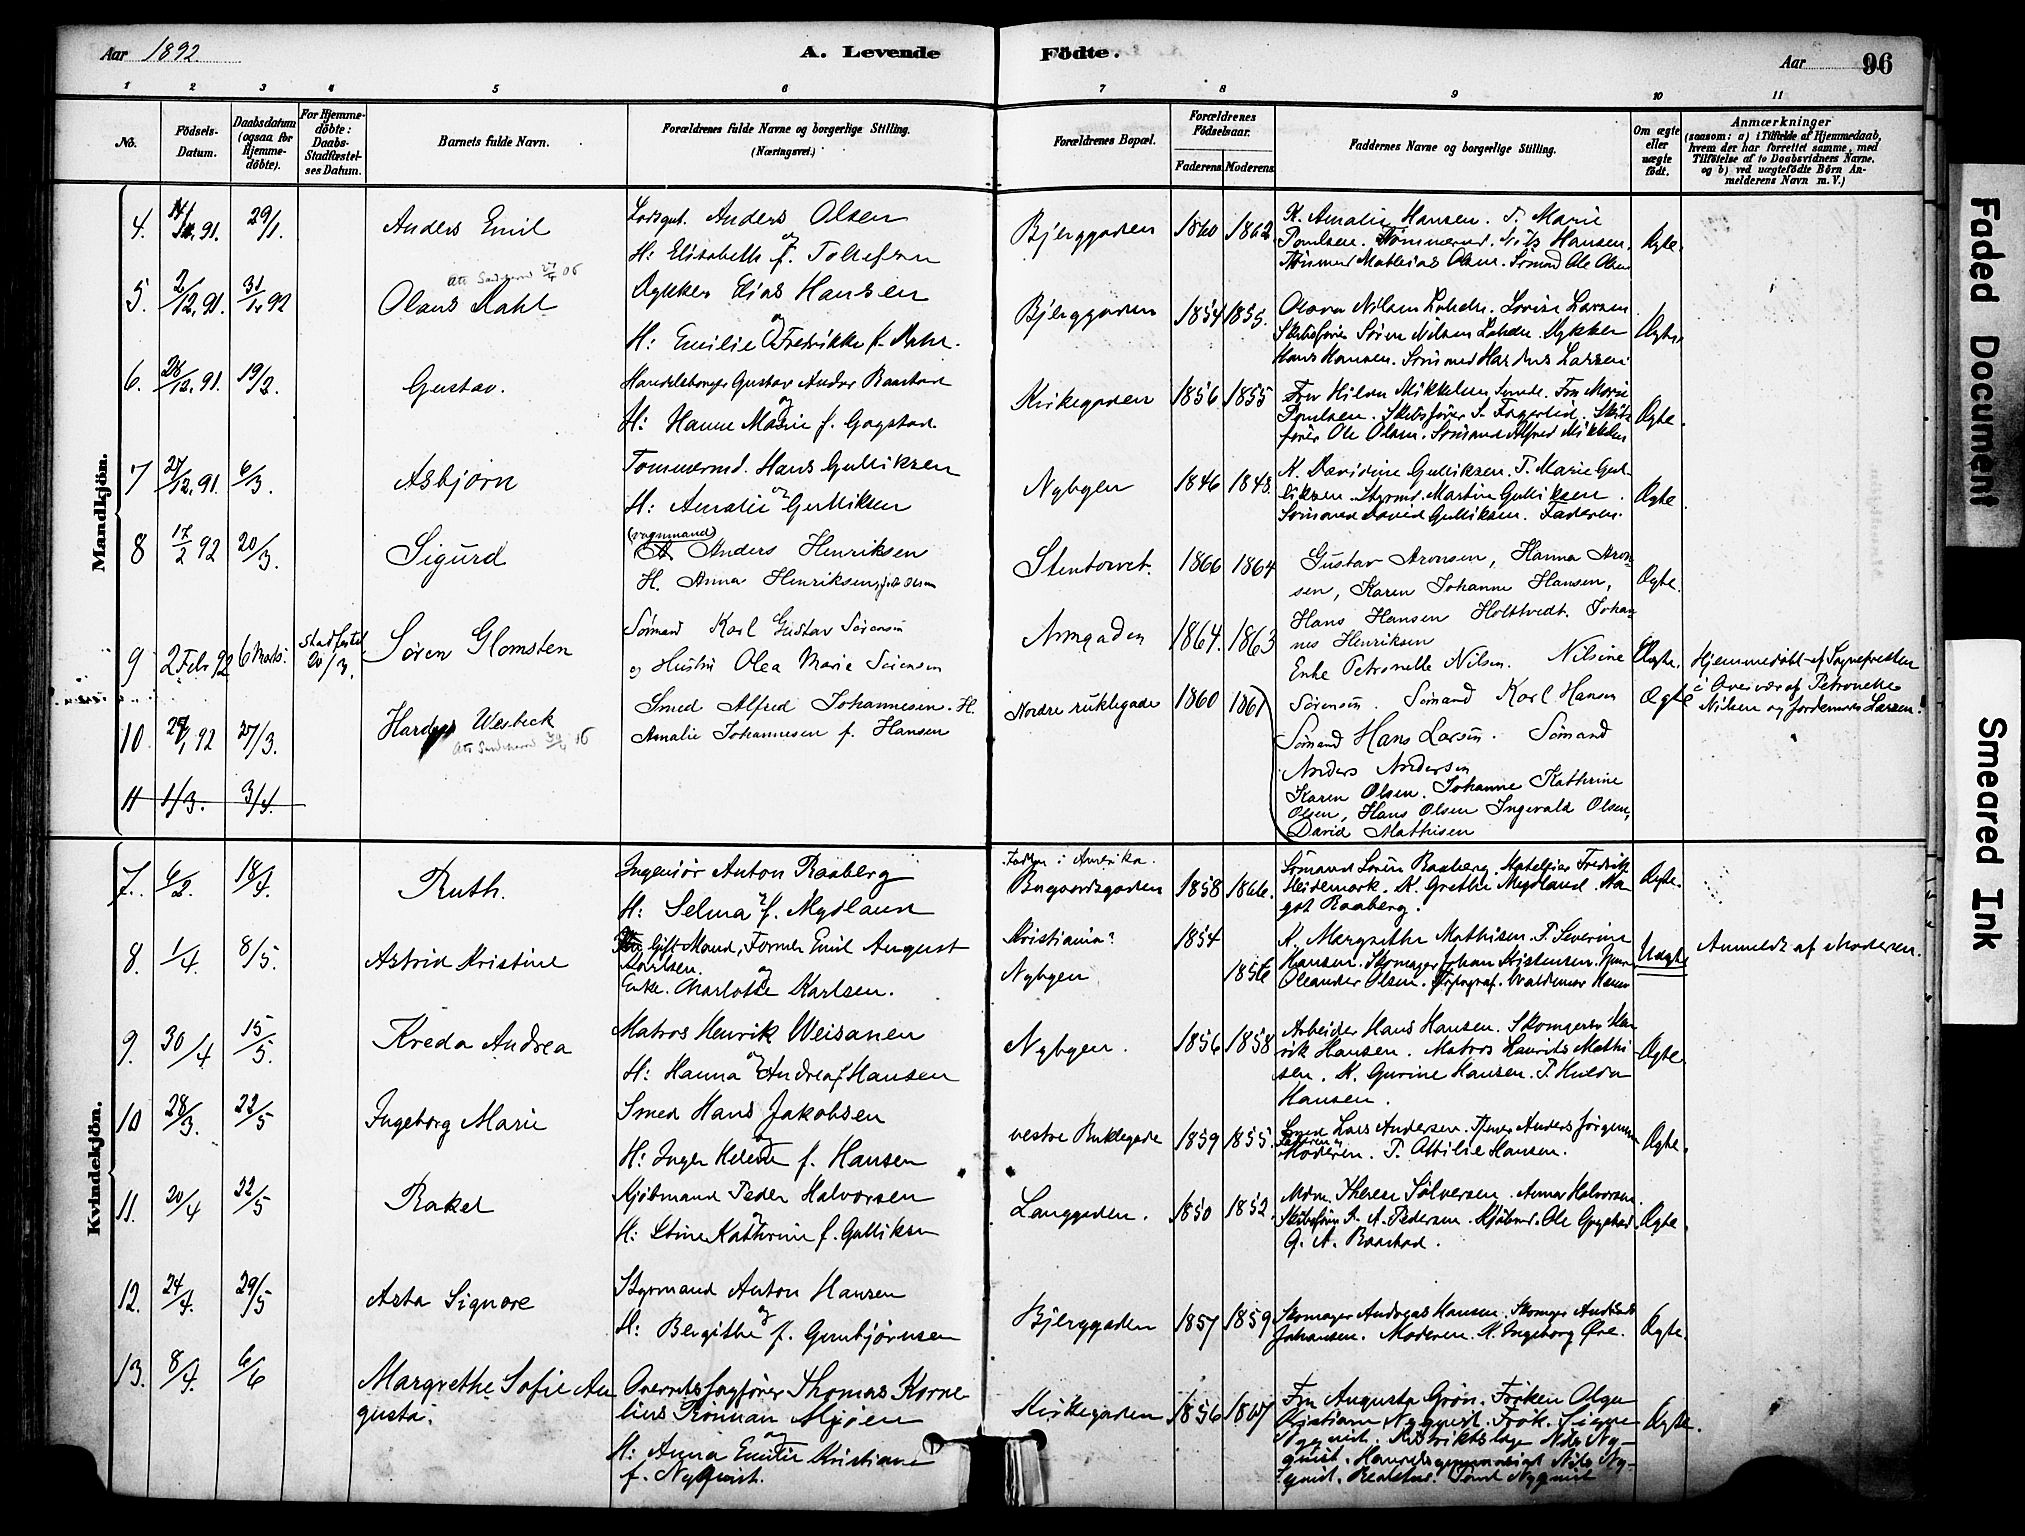 Aar 1892.
A. Levende Födte.
Aar 96
1 2 3 4 5 6 7 8 9 10 11
No.
Födsels-Datum.
Daabsdatum (ogsaa for Hjemme-döbte).
For Hjemme-döbte: Daabs-Stadfæstel-ses Datum.
Barnets fulde Navn.
Forældrenes fulde Navne og borgerlige Stilling. (Næringsvei.)
Forældrenes Bopæl.
Forældrenes Födselsaar.
Faderens. Moderens.
Faddernes Navne og borgerlige Stilling.
Om ægte eller uægte födt.
Anmærkninger
(saasom: a) i Tilfælde af Hjemmedaab, hvem der har forrettet samme, med Tilföielse af to Daabsvidners Navne, og b) ved uægtefödte Börn An-melderens Navn m. V.)
Mandkjön.
4. 91. 29/1. Anders Emil
Anders Olsen
og
H: Elisabeth f. Tollefsen
Bjerggaden 1860 1862
K. Amalie Hansen. P. Marie
Poulsen. Tømmermd. Nils Hansen.
Mathias Olsen. Sömand Ole Olsen
Ægte.
5. 2/12.91. 31/1.92 Olaus Dahl
Dykker Elias Hansen
og
H: Emilie Fredrikke f. Dahl.
Bjerggaden 1854 1855.
Olava Nilsen Lahelle. Lovise Larsen
Skibsfører Søren Nilsen Lahelle. Dykker
Hans Hansen. Sömand Larsen
Ægte.
6. 28/12.91. 19/2. Gustav.
Gustav Andor Raastad
og
H: Hanne Marie f. Gogstad
Kirkegaden 1856 1855
Fru Hilda Mikkelsen Fru Marie
Poulsen. Skibsfører S. Fagerlid. Skibs-
fører Ole Olsen. Sömand Alfred Mikkelsen
Ægte.
7 27/12.91. 6/3. Asbjørn
Tømmermd. Hans Gulliksen
og
H: Amalie Gulliksen
Nybyen 1846 1848.
K. Davidine Gulliksen. P. Marie Gul-
liksen. Styrmd. Martin Gulliksen.
Sömand David Gulliksen. Faderen.
Ægte
8 17/2 92 20/3. Sigurd
(vognmand)
Anders Henriksen
H. Anna Henriksen, født Olsen
Stentorvet. 1866 1864
Gustav Aronsen, Hanna Aron-
sen, Karen Johanne Hansen,
Hans Hansen Holttvedt, Johan-
nes Henriksen
Ægte.
9 2 Febr 92 6 Marts. Stadfestet 20/3. Søren Glomsten
Sömand Karl Gustav Sørensen
og Hustru Olea Marie Sørensen
Armgaden 1864. 1863
Enke Petronelle Nilsen. Nilsine
Sørensen. Sömand Karl Hansen
Sömand Hans Larsen. Sömand
Anders Andersen
Ægte.
Hjemmedøbt af Sognepresten
i Overvær af Petronelle
Nilsen og Jordemoder Larsen.
10 92 27/3. Hardys Wesbeck
Smed Alfred Johannesen. H.
Amalie Johannesen f. Hansen
Nordre 1860 1861
Karen Olsen. Johanne Kathrine
Olsen, Hans Olsen Ingevald Olsen,
David Mathisen
Ægte
11 1/3. 3/4.
Kvindekjön.
7. 6/2. 18/4. Ruth.
Ingeniør Anton Raaberg
og
H: Selma f. Mydland
Fadren i Amerika.
Bugaardsgaden 1858 1866.
Sömand Sören Raaberg. Fredrik
Heidemark. K. Grethe Mydland. Da-
got Raaberg.
Ægte.
8. 1/4. 8/5. Astrid Kristine
Gift Mand, Former Emil August
Karlsen.
og
Enke. Charlotte Karlsen.
Kristiania? 1854
Nybyen 1856
K. Margrethe Mathisen. P. Severine
Hansen. Skomager Johan Kristensen.
Oleander Olsen. Typograf. Valdemar Hansen
Uægte
Anmeldt af Moderen.
9. 30/4 15/5. Kreda Andrea
Matros Henrik Weisanen
og
H: Hanna Andrea f Hansen
Nybyen. 1856 1858
Arbeider Hans Hansen. Skomgersv. Hen-
rik Hansen. Matros Laurits Mathi-
sen. K. Gurine Hansen. P. Hulda
Hansen.
Ægte.
10 28/3. 22/5 Ingeborg Marie
Smed Hans Jakobsen
og
H: Inger Helene f. Hansen
vestre 1859 1855.
Smed Lars Andersen. Anders Jörgensen
Faderen og
Moderen. P. Ottilie Hansen.
Ægte.
11. 20/4 22/5 Rakel
Kjöbmand Peder Halvorsen
og
H: Stine Kathrine f. Gulliksen
Langgaden. 1850 1852.
Mdm. Therese Sølversen. Anna Halvorsen.
Skibsförer A. A. Pedersen. Kjöbmd. Ole Gogstad
G. A. Raastad.
Ægte.
12. 24/4. 29/5 Asta Signore
Styrmand Anton Hansen
og
H: Bergithe f. Gunbjörnsen
Bjerggaden 1857 1859
Skomager Andreas Hansen. Skomager
Johansen. Moderen. K. Ingeborg Øre.
Ægte.
13. 8/4. 6/6 Margrethe Sofie Au
gusta.
Overretssagfører Thomas Korne
lius Römian Mjöen
og
H: Anna Emilie Kristiane
f. Nyquist.
Kirkegaden 1856 1867
Fru Augusta Grön. Fröken Olga
Kristiane Nyquist. Frök. Signe
Nyquist. Distriktslæge Nils Ny-
quist. Nils Ny-
quist. Nyquist
Ægte.
Faded Document
Smeared Ink